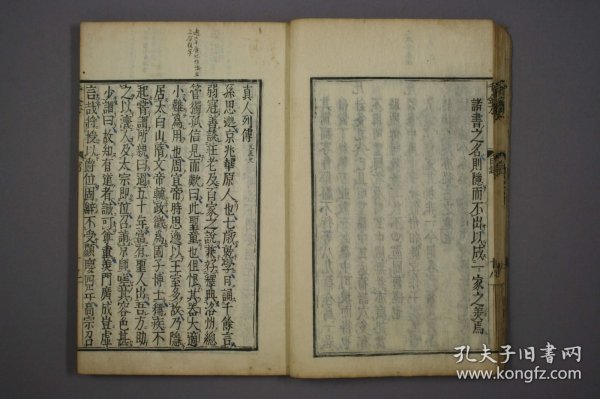 諸書之名則隱而不出以成一家之美焉
真人列傳
孫思邈京兆華原人也七歲就學日誦千餘言
弱冠善談莊老及百家之說兼好釋典洛州總
管獨孤信見而歎曰此聖童也但恨其器大適
小難爲用也周宣帝時思邈以王室多故乃隱
居太白山隋文帝輔政徵爲國子博士稱疾不
起嘗謂所親曰過五十年當有聖人出吾方助
之以濟人及太宗即位召詣京師嗟其容色甚
少謂曰故知有道者誠可尊重羡門廣成豈虛
言哉將授以爵位固辭不受顯慶四年高宗召
孔夫子旧书网
www.kongfz.com